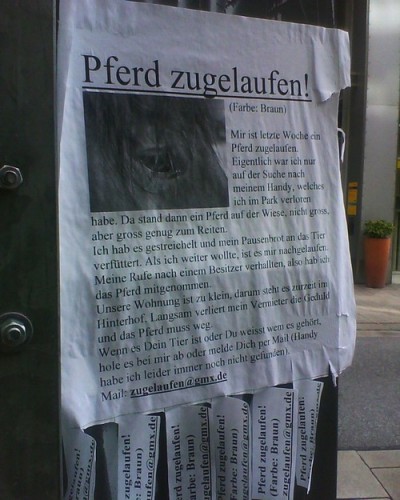 Pferd zugelaufen!
(Farbe: Braun)
Mir ist letzte Woche ein
Pferd zugelaufen.
Eigentlich war ich nur
auf der Suche nach
meinem Handy, welches
ich im Park verloren
habe. Da stand dann ein Pferd auf der Wiese, nicht gross,
aber gross genug zum Reiten.
Ich hab es gestreichelt und mein Pausenbrot an das Tier
verfüttert. Als ich weiter wollte, ist es mir nachgelaufen.
Meine Rufe nach einem Besitzer verhallten, also hab ich
das Pferd mitgenommen.
Unsere Wohnung ist zu klein, darum steht es zurzeit im
Hinterhof. Langsam verliert mein Vermieter die Geduld
und das Pferd muss weg.
Wenn es Dein Tier ist oder Du weisst wem es gehört,
hole es bei mir ab oder melde Dich per Mail (Handy
habe ich leider immer noch nicht gefunden).
Mail: zugelaufen@gmx.de
zugelaufen!
Braun)
zugelaufen!
Braun)
ufen@gmx.de
zugelaufen!
(Farbe: Braun)
zugelaufen@gmx.de
Pferd zugelaufen!
(Farbe: Braun)
zugelaufen@gmx.de
Pferd zugelaufen!
(Farbe: Braun)
zugelaufen@gmx.de
Pferd zugelaufen!
Braun)